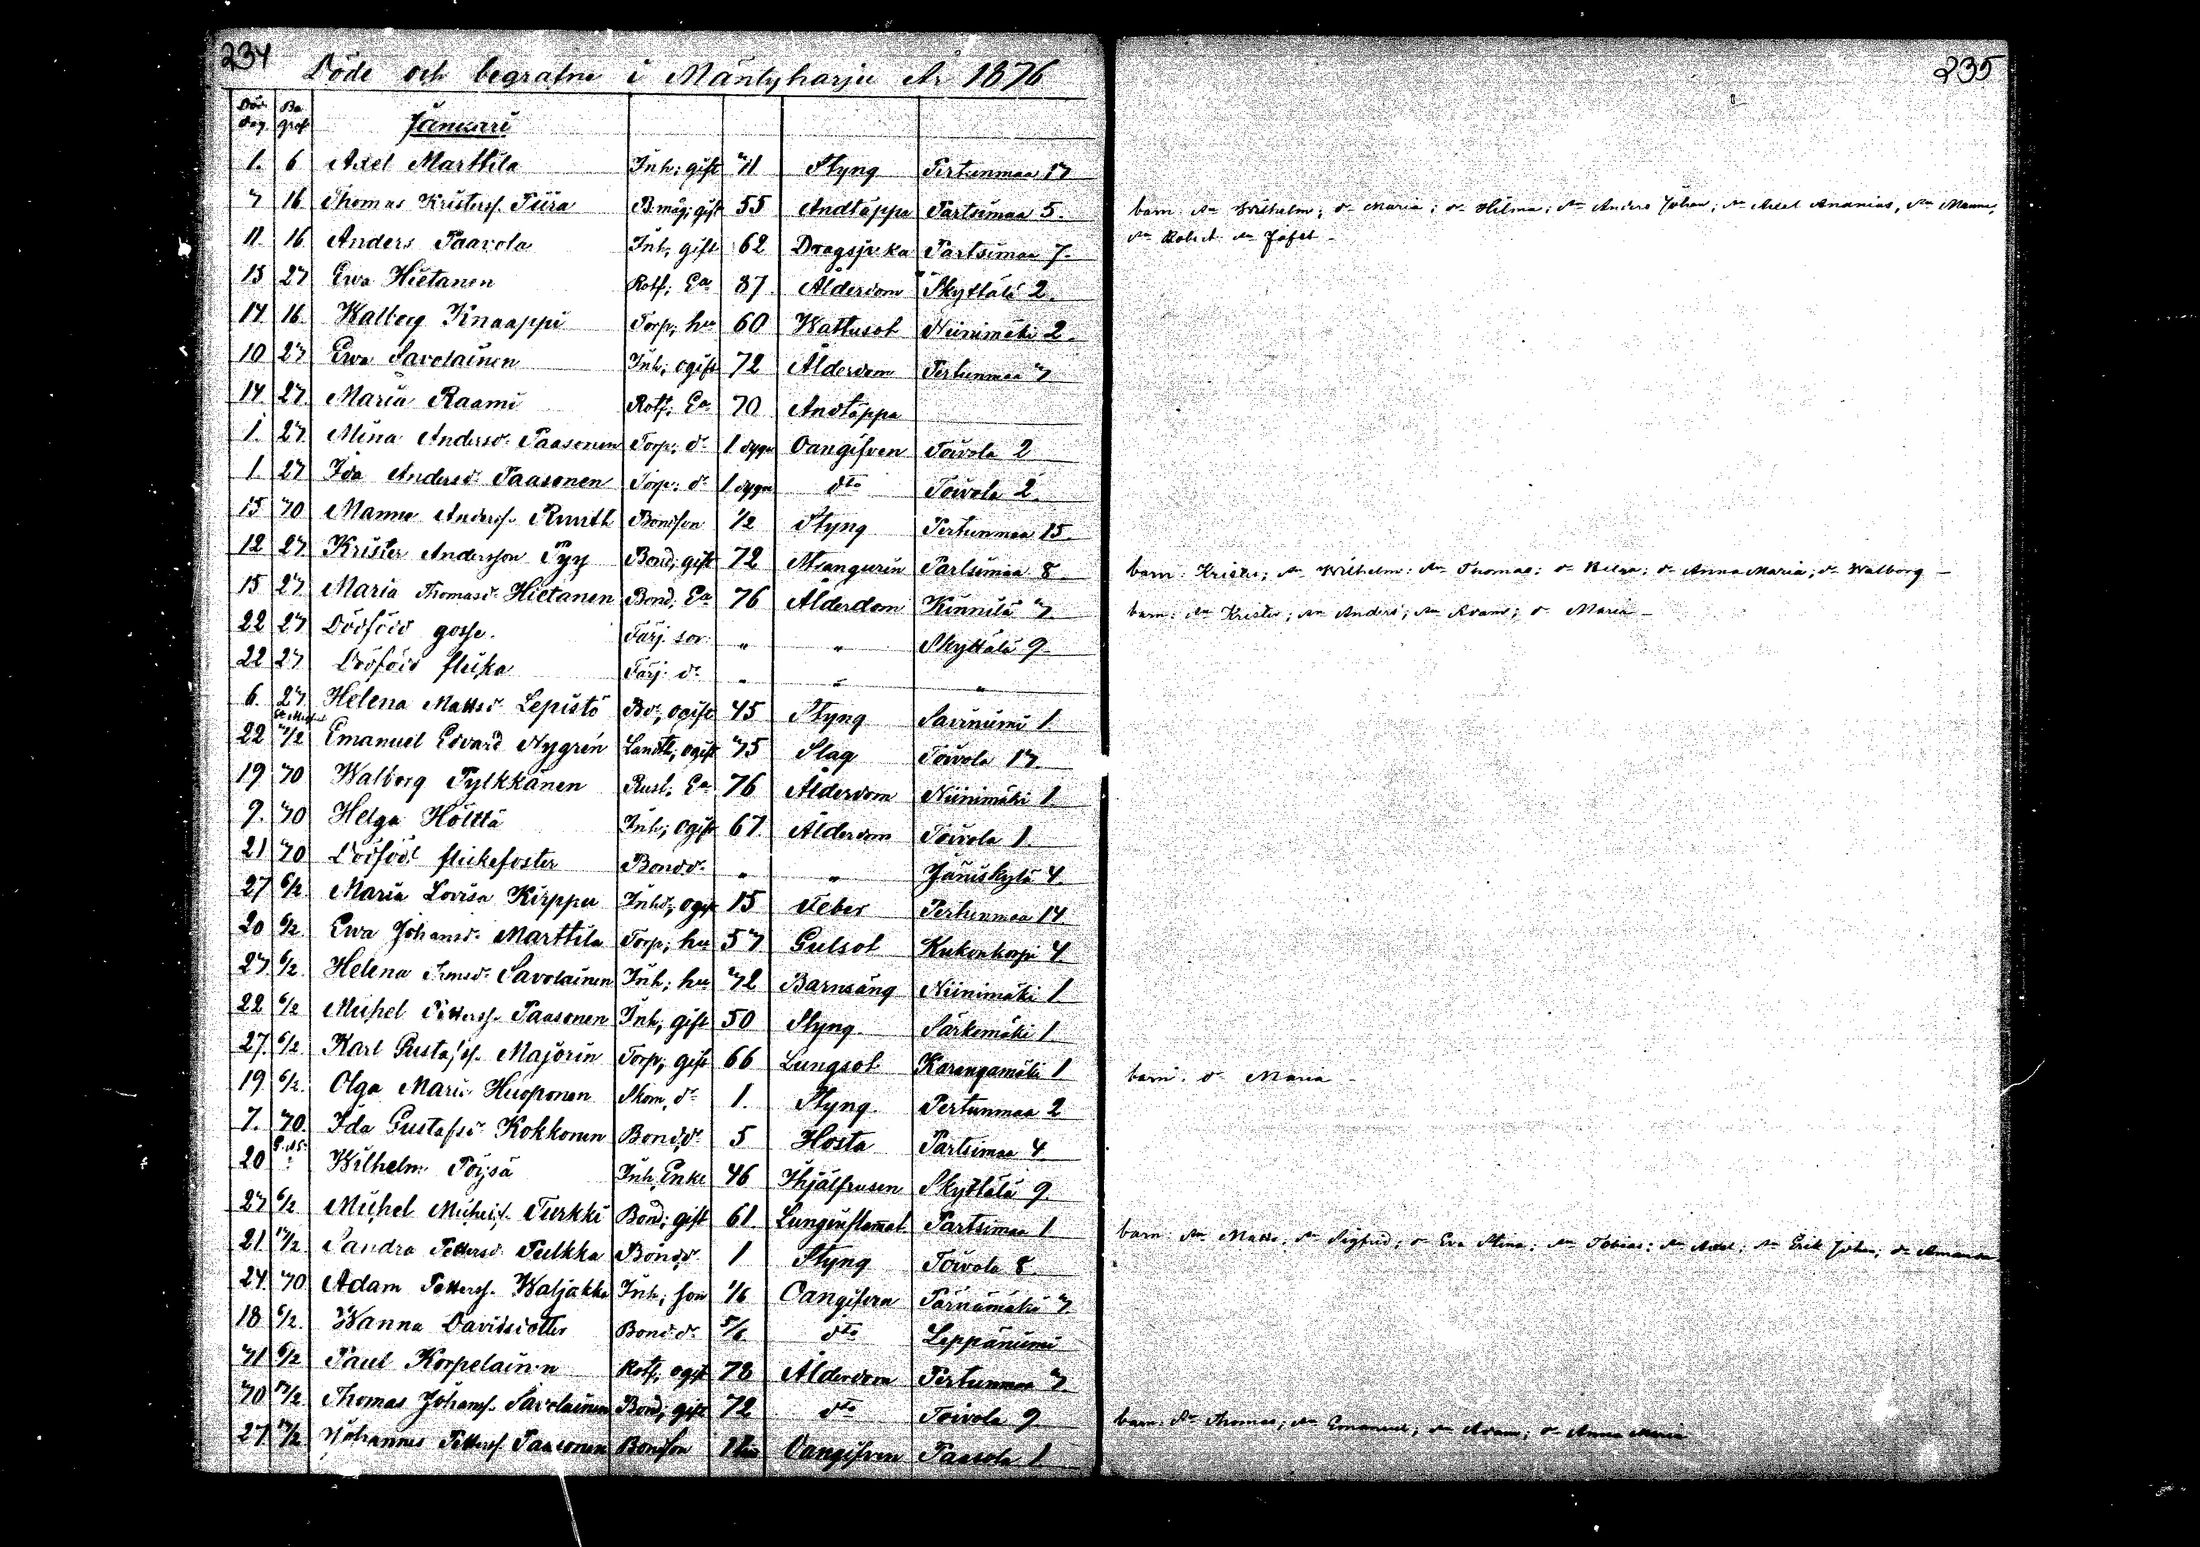 234
Döde och begrafne i Mäntyharju År 1876
Död dag. Be graf.
Januari
1. 6 Axel Marttila Inh; gift 71 Styng Pertunmaa 17
7 16 Thomas Kristersf. Piira B.måg; gift 55 Andtäppa Partsimaa 5.
11. 16 Anders Paavola Inh, gift 62 Dragsjuka Partsimaa 7.
15 27 Ewa Hietanen Rotf; Ea 87. Ålderdom Skyttälä 2.
14 16. Walborg Knaappi Torp; hu 60 Wattusot Niinimäki 2.
10 27 Ewa Savolainen Inh; ogift 72 Ålderdom Pertunmaa 7
14 27. Maria Raami Rotf; Ea 70 Andtäppa
1. 27. Mina Andersd. Paasonen Torp; dr 1 dygn Oangifven Toivola 2
1. 27 Ida Andersd. Paasonen Torp; dr 1 dygn dto Toivola 2.
15 30 Manne Andersf. Ruuth Bondson 1/2 Styng Pertunmaa 15.
12 27 Krister Andersson Pyy Bond; gift 72 Partsimaa 8
15 27 Maria Thomasd. Hietanen Bond. Ea 76 Ålderdom Kinnilä 7.
22 27 Dödföd gosse. Färj. son " " Skyttälä 9
22 27 Dödföd flicka Färj. dr " " "
6. 27. Helena Mattsd. Lepistö Bd; ogift 45 Styng Sarvniemi 1.
22 7/2 Emanuel Edvard Nygrén ogift 75 Slag Toivola 17.
19 30 Walborg Pylkkänen Rust; Ea 76 Ålderdom Niinimäki 1.
9. 30 Helga Hölttä Inh; ogift 67. Ålderdom Toivola 1.
21 30 Dödföd flickefoster Bonddr " " Jäniskylä 4.
27 6/2 Maria Lovisa Kirppu Inhd; ogift 15 Feber Pertunmaa 14
20 6/2. Ewa Johansd. Marttila Torp; hu 57 Gulsot Kukonkorpi 4.
27. 6/2 Helena Savolainen Inh; hu 32 Barnsäng Niinimäki 1
22 6/2 Michel Pettersf. Paasonen Inh; gift 50 Styng Särkemäki 1.
27. 6/2. Karl Gustafsf. Majorin Torp; gift 66 Lungsot Karangamäki 1
19 6/2. Olga Maria Huoponen Skom, dr 1. Styng. Pertunmaa 2
7. 30. Ida Gustafsd. Kokkonen Bond,dr 5 Hosta Partsimaa 4.
20 Wilhelm Pöysä Inh, Enkl 46 Ihjälfrusen Skyttälä 9.
27 6/2. Michel Michelsf. Turkki Bond; gift 61. Lunginflamat. Partsimaa 1
21 13/2. Sandra Pettersd. Pulkka Bonddr 1 Styng Toivola 8.
24 30 Adam Pettersf. Waljakka Inh; son 1/6 Oangifven Pärnämäki 7.
18 6/2. Wanna Davidsdotter Bonddr 5/6. dto Leppäniemi
31 6/2 Paul Korpelainen Rotf; ogift 78 Ålderdom Pertunmaa 7.
30 13/2. Thomas Johansf. Savolainen Bond; gift 72 dto Toivola 9
27 13/2 Johannes Pettersf. Paasonen Bondson Oangifven Paasola 1.
235
barn: sn Wilhelm; dr Maria; dr Hilma; sn Anders Johan; sn Axel Ananias, sn Manne,
sn Robert. sn Jafet -
barn: Krister; sn Wilhelm: sn Thomas; dr Helga; dr Anna Maria; dr Walborg -
barn: sn Krister; sn Anders; sn Adam; dr Maria -
barn: dr Maria -
barn: sn Matts; sn Sigfrid; dr Eva Stina; sn Tobias; sn Axel; sn Erik Johan; dr Amanda
barn: sn Thomas; sn Emanuel; sn Adam; dr Anna Maria